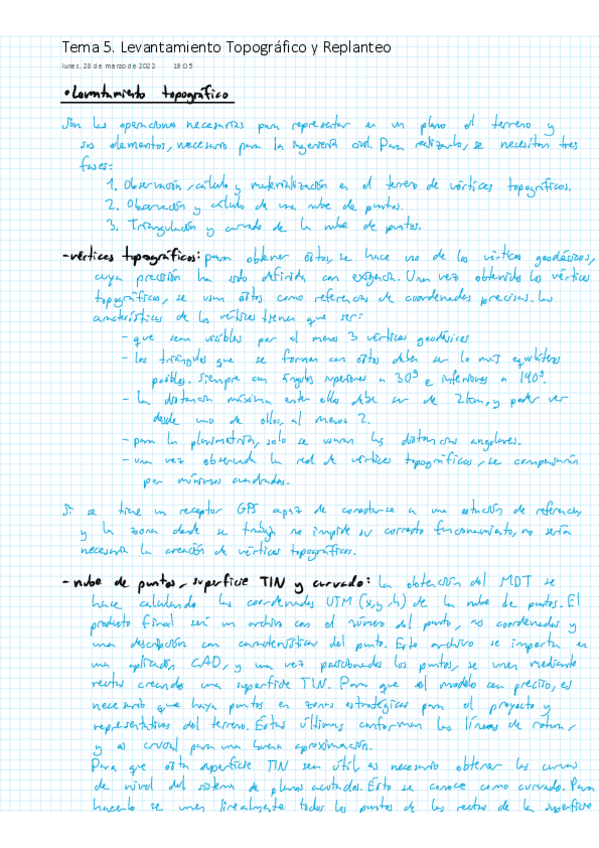 Tema 5. Levantamiento Topográfico y Replanteo
lunes, 28 de marzo de 2022 19:05
• Levantamiento topográfico
Son las operaciones necesarias para representar en un plano el terreno y
sus elementos, necesario para la ingeniería civil. Para realizarlo, se necesitan tres
fases:
1. Observación, cálculo y materialización en el terreno de vértices topográficos.
2. Observación y cálculo de una nube de puntos.
3. Triangulación y curvado de la nube de puntos.
- vértices topográficos: para obtener éstos, se hace uso de los vértices geodésicos,
cuya precisión ha sido definida con exigencia. Una vez obtenido los vértices
topográficos, se usan éstos como referencias de coordenadas precisas. Las
características de los vértices tienen que ser:
- que sean visibles por al menos 3 vértices geodésicos
- los triángulos que se forman con éstos deben ser lo más equiláteros
posibles. Siempre con ángulos superiores a 30g e inferiores a 140g.
- la distancia máxima entre ellos debe ser de 2km, y poder ver
desde uno de ellos, al menos 2.
- para la planimetría, solo se usarán las distancias angulares.
- una vez observada la red de vértices topográficos, se compensarán
por mínimos cuadrados.
Si se tiene un receptor GPS capaz de conectarse a una estación de referencia,
y la zona donde se trabaja no impide su correcto funcionamiento, no sería
necesaria la creación de vértices topográficos.
- nube de puntos, superficie TIN y curvado: La obtención del MDT se
hace calculando las coordenadas UTM (x,y,h) de la nube de puntos. El
producto final será un archivo con el número del punto, sus coordenadas y
una descripción con características del punto. Este archivo se importa en
una aplicación CAD, y una vez posicionados los puntos, se unen mediante
rectas creando una superficie TIN. Para que el modelo sea preciso, es
necesario que haya puntos en zonas estratégicas para el proyecto y
representativas del terreno. Estas últimas conforman las líneas de rotura,
y es crucial para una buena aproximación.
Para que esta superficie TIN sea útil es necesario obtener las curvas
de nivel del sistema de planos acotados. Esto se conoce como curvado. Para
hacerlo se unen linealmente todos los puntos de las rectas de la superficie